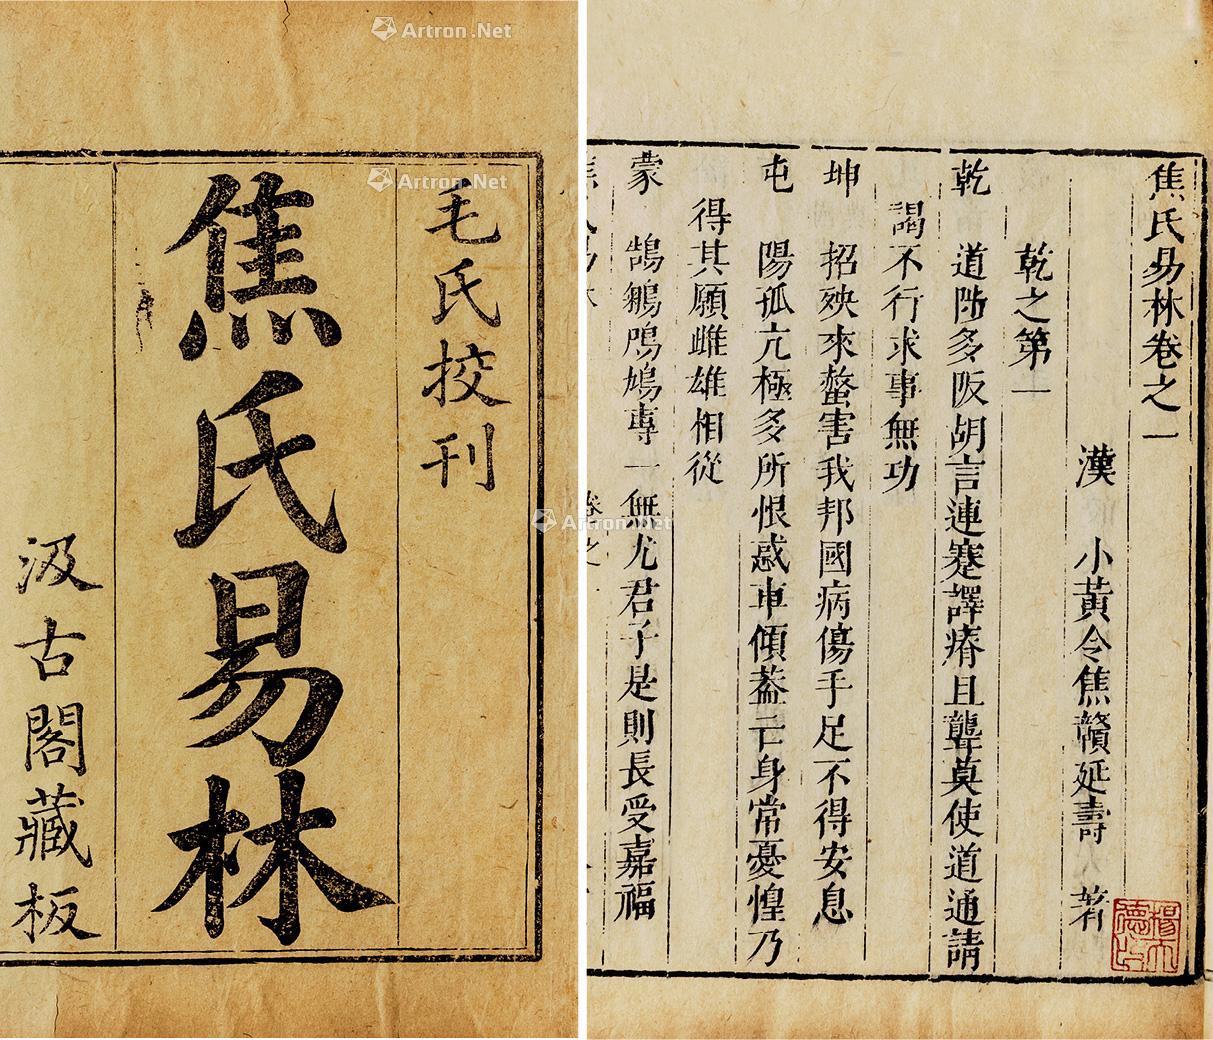 毛氏挍刊
焦氏易林
汲古閣藏板
焦氏易林卷之一
漢 小黃令焦贛延壽 著
乾之第一
乾 道陟多阪胡言連蹇譯瘠且聾莫使道通請
謁不行求事無功
坤 招殃來螫害我邦國病傷手足不得安息
屯 陽孤亢極多所恨惑車傾葢亡身常憂惶乃
得其願雌雄相從
蒙 鵠鵴鳲鳩專一無尤君子是則長受嘉福
Artron.Net
Artron.Net
Artron.Net